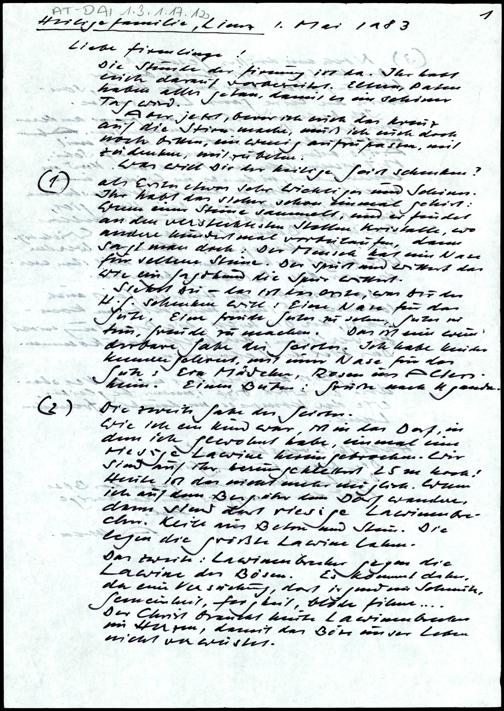 AT-DAI 1.3.1.17.120
Heiligefamilie, Lienz 1. Mai 1983
1
Liebe Firmlinge!
Die Stunde der Firmung ist da. Ihr habt
euch darauf vorbereitet. Eltern, Paten
haben alles getan, damit es ein schöner
Tag wird.
Aber jetzt, bevor ich euch das Kreuz
auf die Stirn mache, muß ich euch doch
noch bitten, ein wenig aufzupassen, mit
zudenken, mitzubeten.
Was will Dir der heilige Geist schenken?
(1) Als Erstes etwas sehr Wichtiges und Schönes.
Ihr habt das sicher schon einmal gehört:
Wenn einer Steine sammelt, und er findet
an den verstecktesten Stellen Kristalle, wo
andere hundertmal vorbeilaufen, dann
sagt man doch: Der Mensch hat eine Nase
für seltene Steine. Der spürt und wittert das
wie ein Jagdhund die Spur wittert.
Siehst Du – das ist das erste, was Dir der
H.G. schenken will: Eine Nase für das
Gute. Eine Freude Gutes zu sehn, Gutes zu
tun, Freude zu machen. Das ist eine wun
derbare Gabe des Geistes. Ich habe Kinder
kennen gelernt, mit einer Nase für das
Gute: Ein Mädchen, Rosen ins Alters-
heim. Einen Buben: Grüße nach Uganda.
(2) Die zweite Gabe des Geistes.
Wie ich ein Kind war, ist in das Dorf, in
dem ich gewohnt habe, einmal eine
riesige Lawine hereingebrochen. Wir
sind auf ihr herumgeklettert. 25 m hoch!
Heute ist das nicht mehr möglich. Wenn
ich auf dem Berg über dem Dorf wandere,
dann sind dort riesige Lawinenbre-
cher. Keile aus Beton und Stein. Die
legen die größte Lawine lahm.
Das zweite: Lawinenbrecher gegen die
Lawine des Bösen. Es kommt daher,
da eine Versuchung, dort irgend ein Schmutz,
Gemeinheit, Feigheit, blöde Filme....
Der Christ braucht heute Lawinenbrecher
im Herzen, damit das Böse unser Leben
nicht verwüstet.